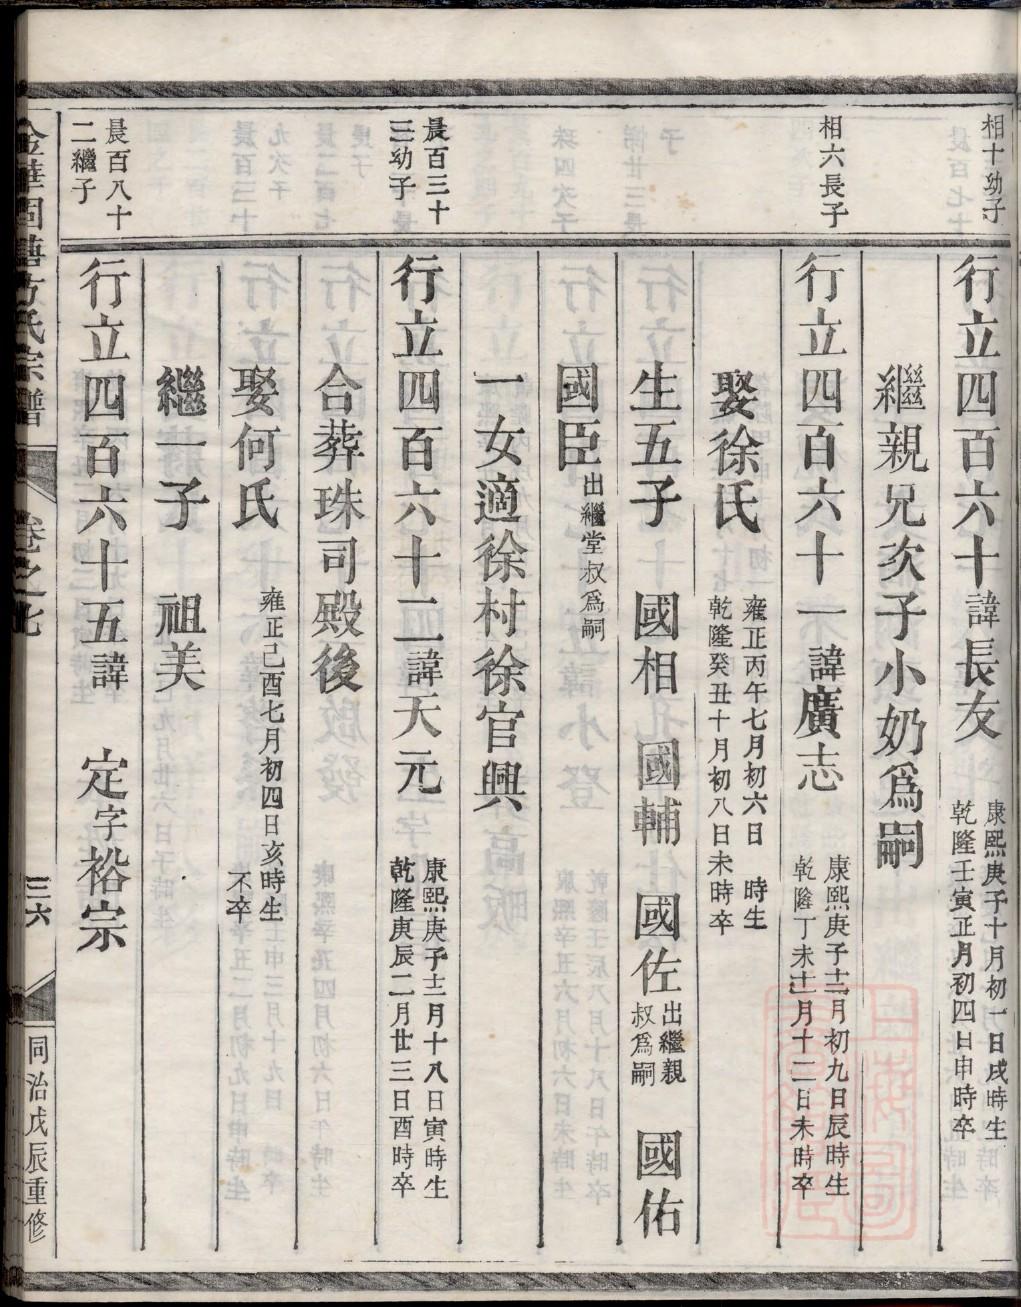 相十幼子
行立四百六十諱長友 康熙庚子十月初一日戌時生
乾隆壬寅正月初四日申時卒
繼親兄次子小奶爲嗣
相六長子
行立四百六十一諱廣志 康熙庚子十二月初九日辰時生
乾隆丁未十一月十二日未時卒
娶徐氏 雍正丙午七月初六日 時生
乾隆癸丑十月初八日未時卒
生五子 國相 國輔 國佐 出繼親
叔爲嗣 國佑
國臣 出繼堂叔爲嗣
一女適徐村徐官興
晨百三十
三幼子
行立四百六十二諱天元 康熙庚子十二月十八日寅時生
乾隆庚辰二月廿三日酉時卒
合葬珠司殿後
娶何氏 雍正己酉七月初四日亥時生
不卒
繼一子 祖美
晨百八十
二繼子
行立四百六十五諱 定字裕宗
金華固塘方氏宗譜 卷之七 三六 同治戊辰重修